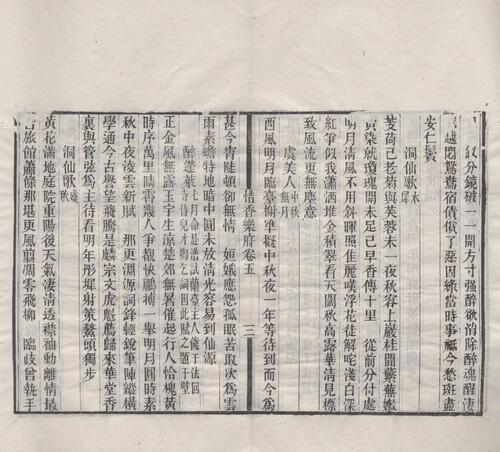 釵分鏡破一一關方寸强醉欲消除醉魂醒淒
越悶鴛鴦宿債償了惡因緣當時事祗今愁斑盡
安仁鬢
洞仙歌 木犀
芰荷已老菊與芙蓉未一夜秋容上巖桂間嫩
黃染就瓊瑰開未足已早香傳十里　從前分付處
明月清風不用斜暉照佳麗嘆浮花徒解咤淺白深
紅爭似我瀟洒堆金積翠看天闊秋高露華清見標
致風流更無塵意
虞美人 中秋無月
西風明月臨臺榭準擬中秋夜一年等待到而今爲
惜香樂府卷五 三
甚今宵陡頓卻無情　姮娥應怨孤眠苦取次爲雲
雨素蟾特地暗中圓未放清光容易到仙源
醉蓬萊
正金風無露玉宇生涼楚郊無暑催起行人恰槐黃
時序萬里晴霄幾人爭覩快鵬摶一舉明月圓時素
秋中夜凌雲新賦　那更淵源詞鋒輕銳筆陣縱橫
學通今古譽望飛騰是麟宗文虎魁薦歸來華堂香
裊與管弦爲主待看明年彤墀射策鰲頭獨步
洞仙歌 殘秋
黃花滿地庭院重陽後天氣淒清透襟袖動離情最
苦旅館蕭條那堪更風翦凋零飛柳　臨岐曾執手